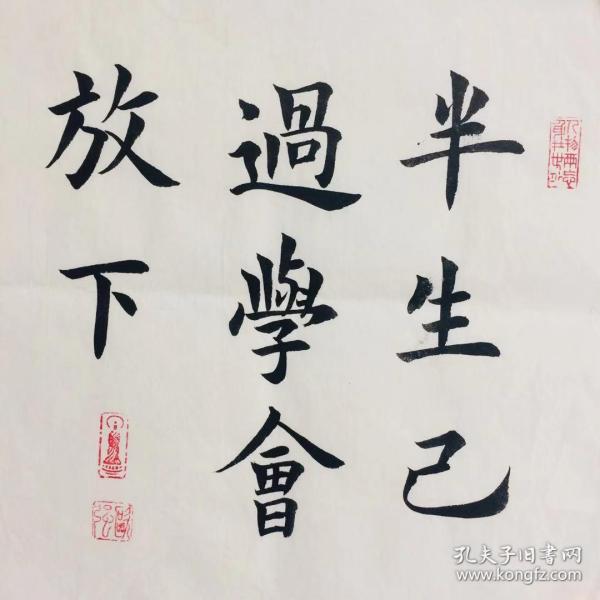 半生已
過學會
放下
孔夫子旧书网
www.kongfz.com